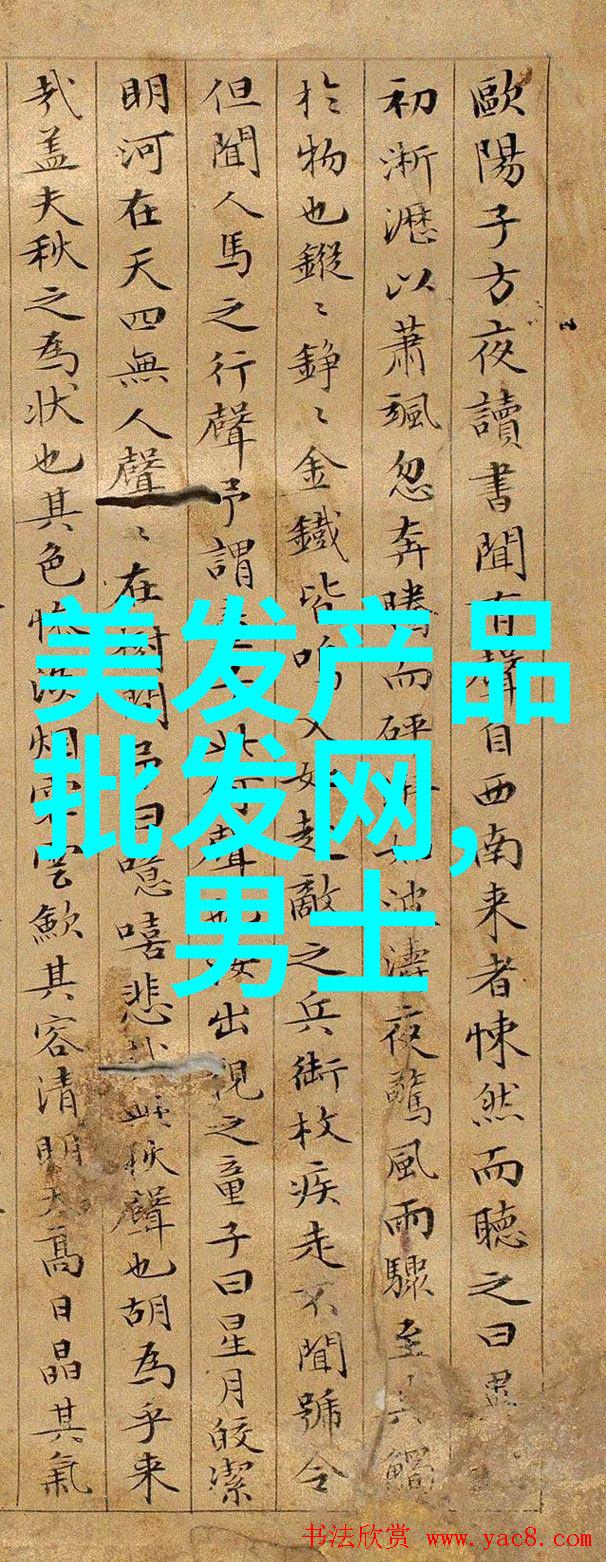 歐陽子方夜讀書聞有聲自西南来者悚然而聽之曰異
初淅瀝以蕭颯忽奔騰而砰湃如波濤夜驚風雨驟至其觸
於物也鏦〻錚〻金鐵皆鳴又如赴敵之兵銜枚疾走不聞號令
但聞人馬之行聲予謂此何聲也汝出視之童子曰星月皎潔
明河在天四無人聲〻在樹間予曰噫嘻悲秋聲也胡為乎来
哉盖夫秋之為狀也其色惨淡烟霏雲歛其容清明天高日晶其氣
美发产品
批发网,
男士
书法欣赏 www.yac8.com